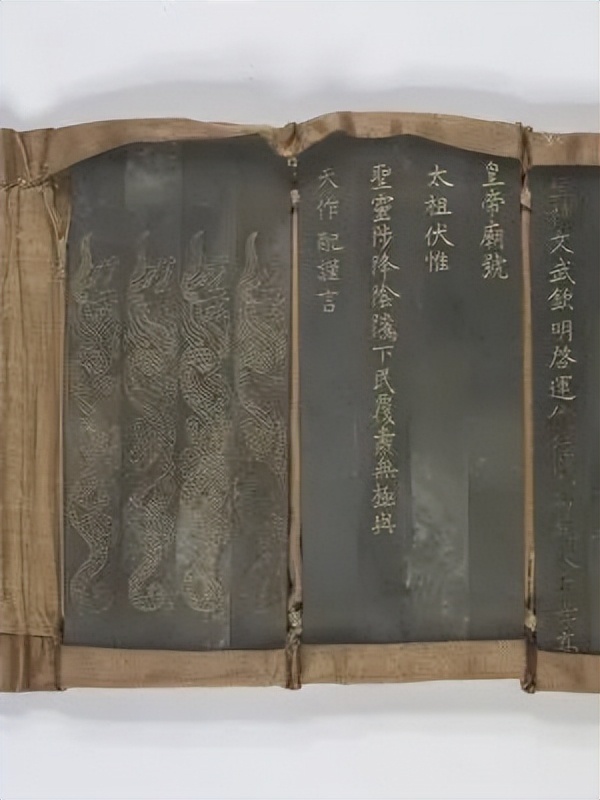 文武欽明啓運
皇帝廟號
太祖伏惟
聖靈陟降陰隲下民覆燾無極與
天作配謹言